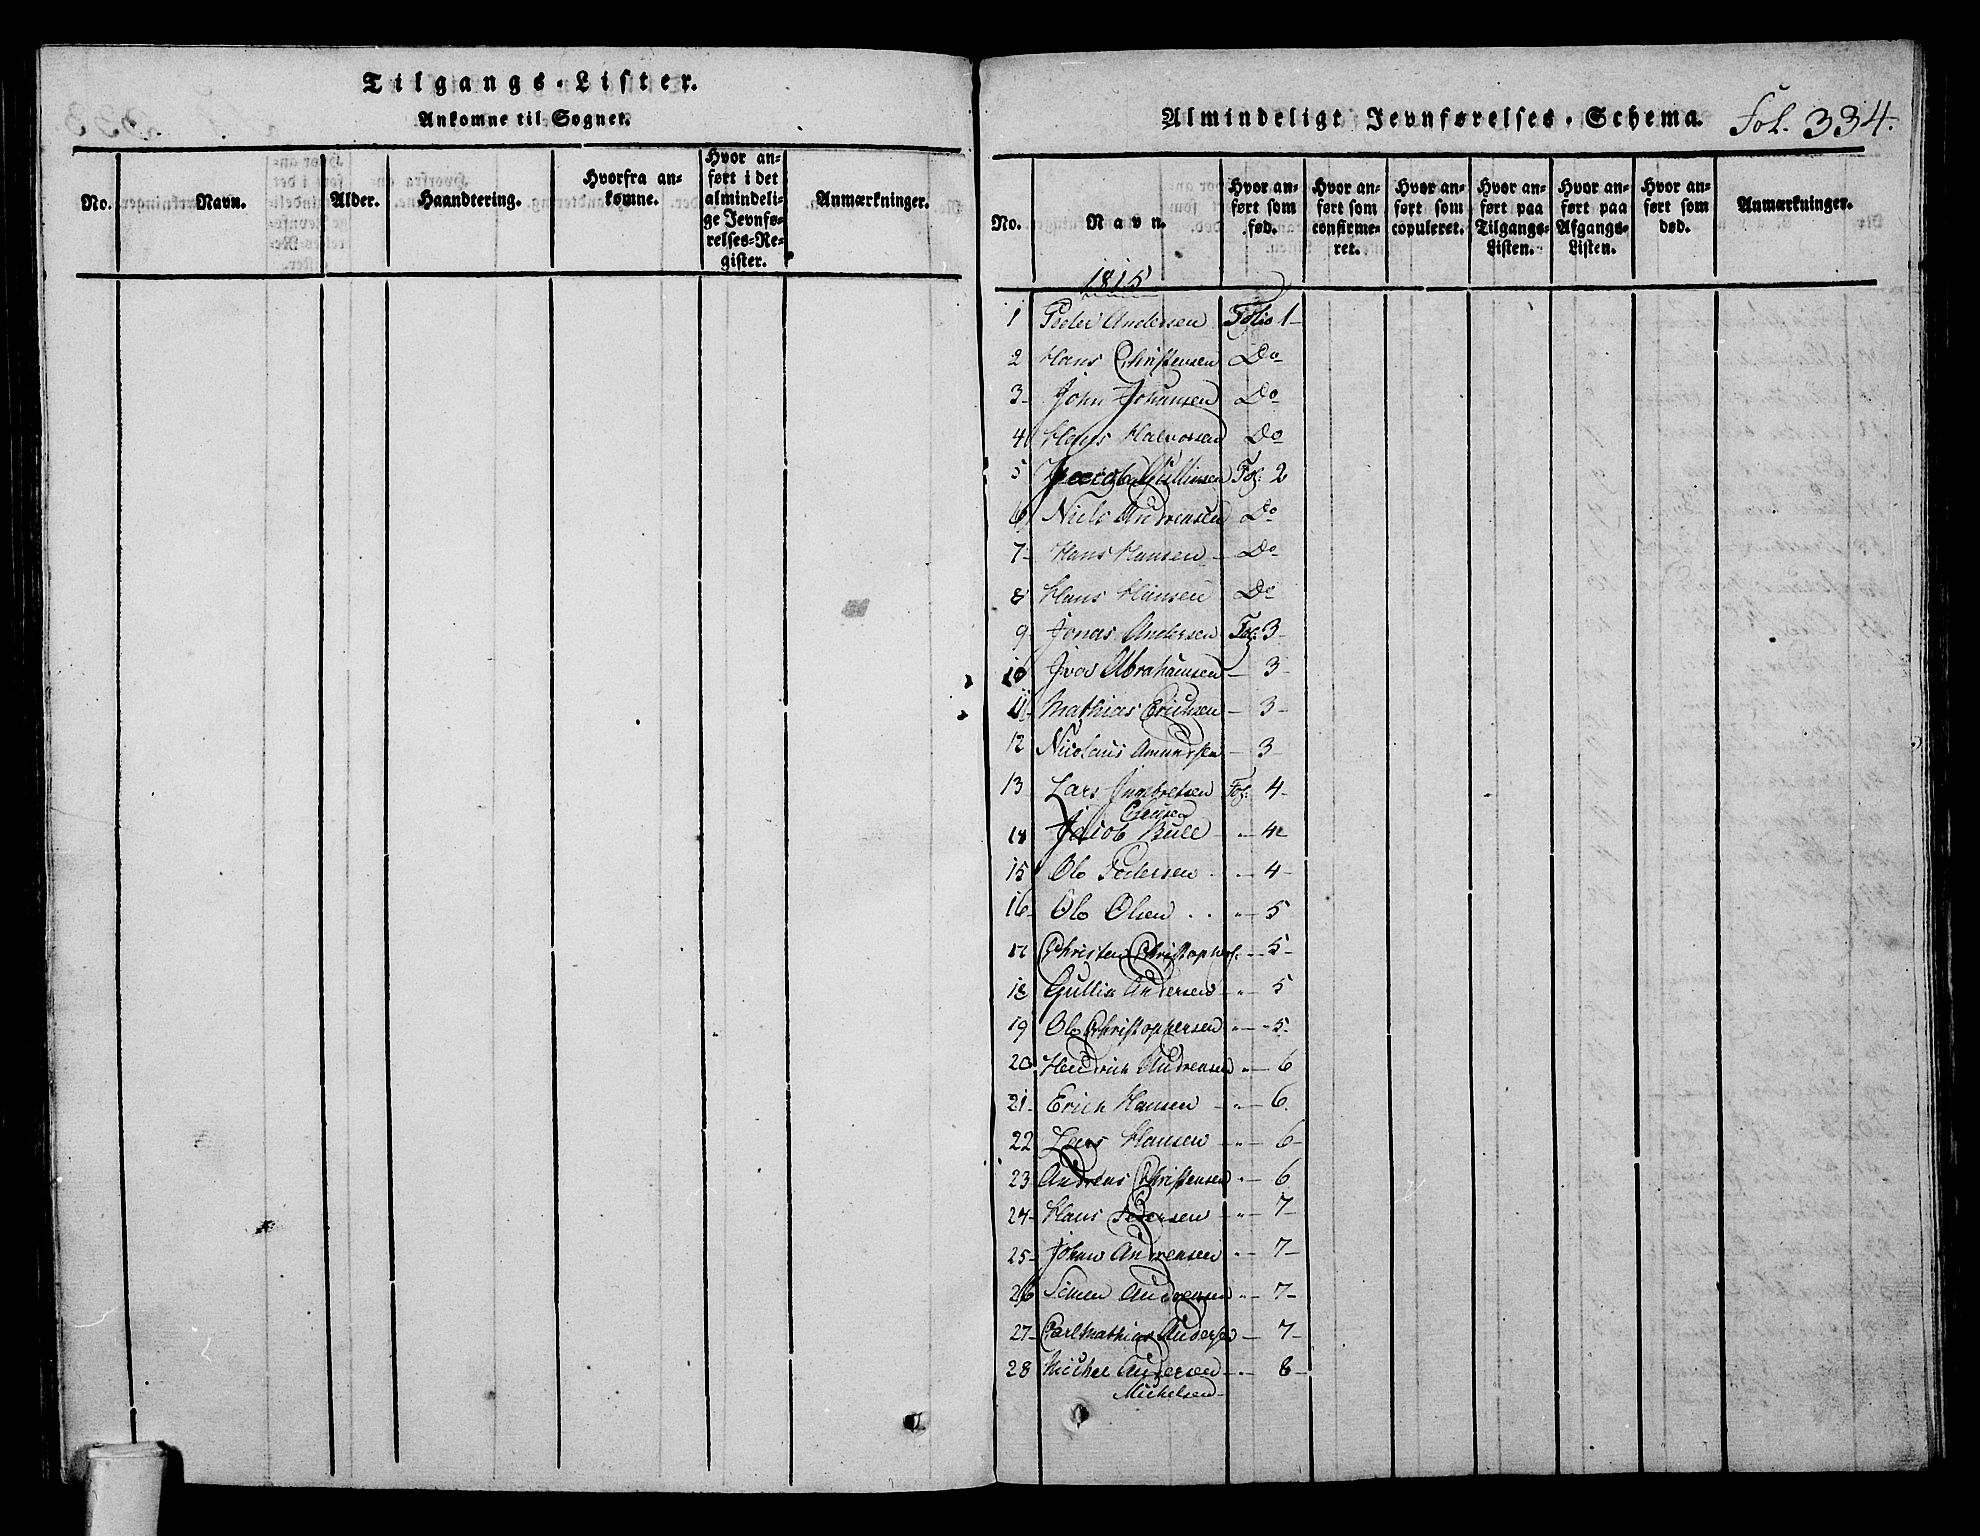 Tilgangs-Lister.
Ankomne til Sognet.
No.
Navn.
Alder.
Haandtering.
Hvorfra an-
komne.
Hvor an-
ført i det
almindeli-
ge Jevnfø-
relses-Re-
gister.
Anmærkninger.
Almindeligt Jevnførelses-Schema.
Fol. 334.
No.
Navn.
Hvor an-
ført som
fød.
Hvor an-
ført som
confirme-
ret.
Hvor an-
ført som
copuleret.
Hvor an-
ført paa
Tilgangs-
Listen.
Hvor an-
ført paa
Afgangs-
Listen.
Hvor an-
ført som
død.
Anmærkninger.
1815
1 Peder Andersen Folio 1
2 Hans Christensen Do
3 John Johansen Do
4 Hans Halvorsen Do
5 Jacob Gulliksen Fol: 2
6 Niels Andreasen Do
7 Hans Hansen Do
8 Hans Hansen Do
9 Jonas Andersen Fol: 3
10 Iver Abrahamsen 3
11 Mathias Erichsen 3
12 Nicolaus Amundsen 3
13 Lars Ingebretsen Fol: 4
Clausen
14 Jacob Bull " 4
15 Ole Pedersen " 4
16 Ole Olsen " 5
17 Christen Christophers. 5
18 Gullik Andersen " 5
19 Ole Christophersen " 5
20 Hendrich Andreasen " 6
21 Erich Hansen " 6
22 Lars Hansen " 6
23 Andreas Christensen " 6
24 Hans Pedersen " 7
25 Johan Andreasen " 7
26 Simen Andreasen " 7
27 Carl Mathias Andersen 7
28 Michel Andersen " 8
Michelsen